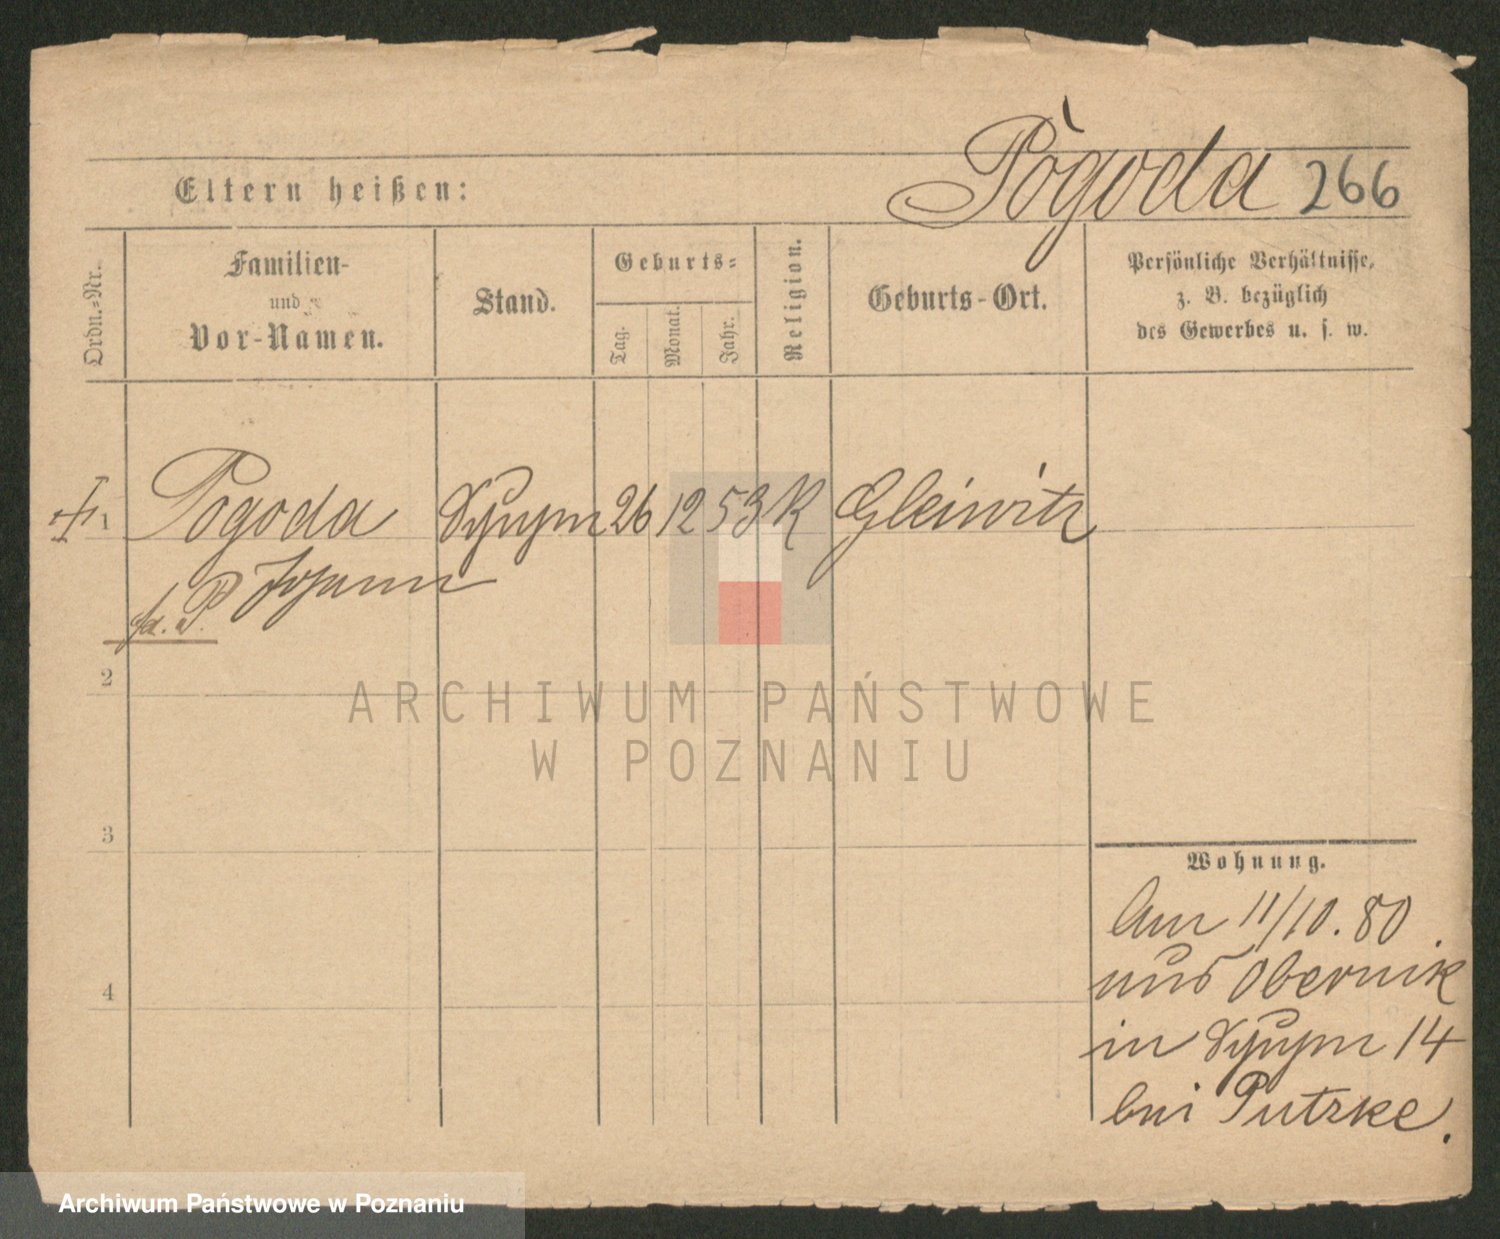 Pogoda 266
Eltern heißen:
Ordn.-Nr.
Familien-
und
Vor-Namen.
Stand.
Geburts-
Tag.
Monat.
Jahr.
Religion.
Geburts-Ort.
Persönliche Verhältnisse,
z. B. bezüglich
des Gewerbes u. s. w.
1 Pogoda 26 12 53 K Gleiwitz
Johann
2
3
4
Wohnung.
Am 11/10. 80
aus Obernik
in 14
bei Putzke.
ARCHIWUM PAŃSTWOWE
W POZNANIU
Archiwum Państwowe w Poznaniu